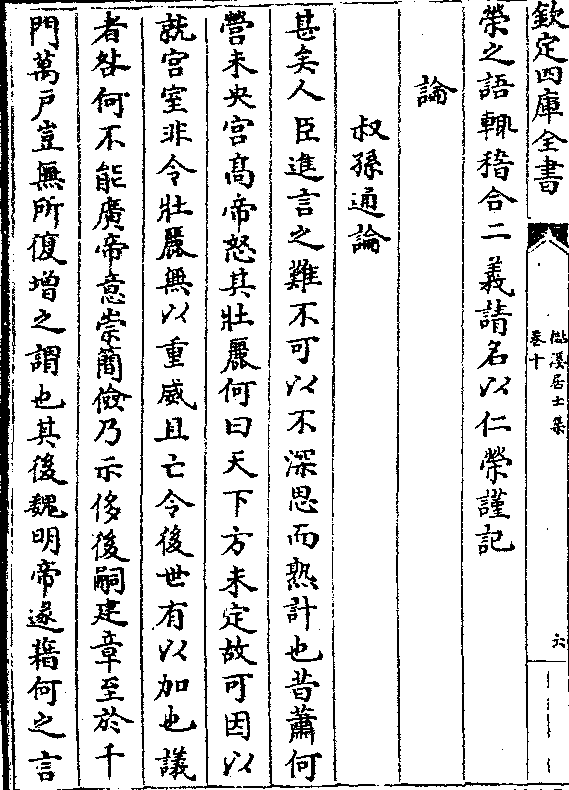 欽定四庫全書
卷十
居士集
六
榮之語輒稽合二義請名以仁榮謹記
論
叔孫通論
甚矣人臣進言之難不可以不深思而熟計也昔蕭何
營未央宮高帝怒其壯麗何曰天下方未定故可因以
就宮室非令壯麗無以重威且亡令後世有以加也議
者咎何不能廣帝意崇簡儉乃示侈後嗣建章至於千
門萬戶豈無所復增之謂也其後魏明帝遂藉何之言